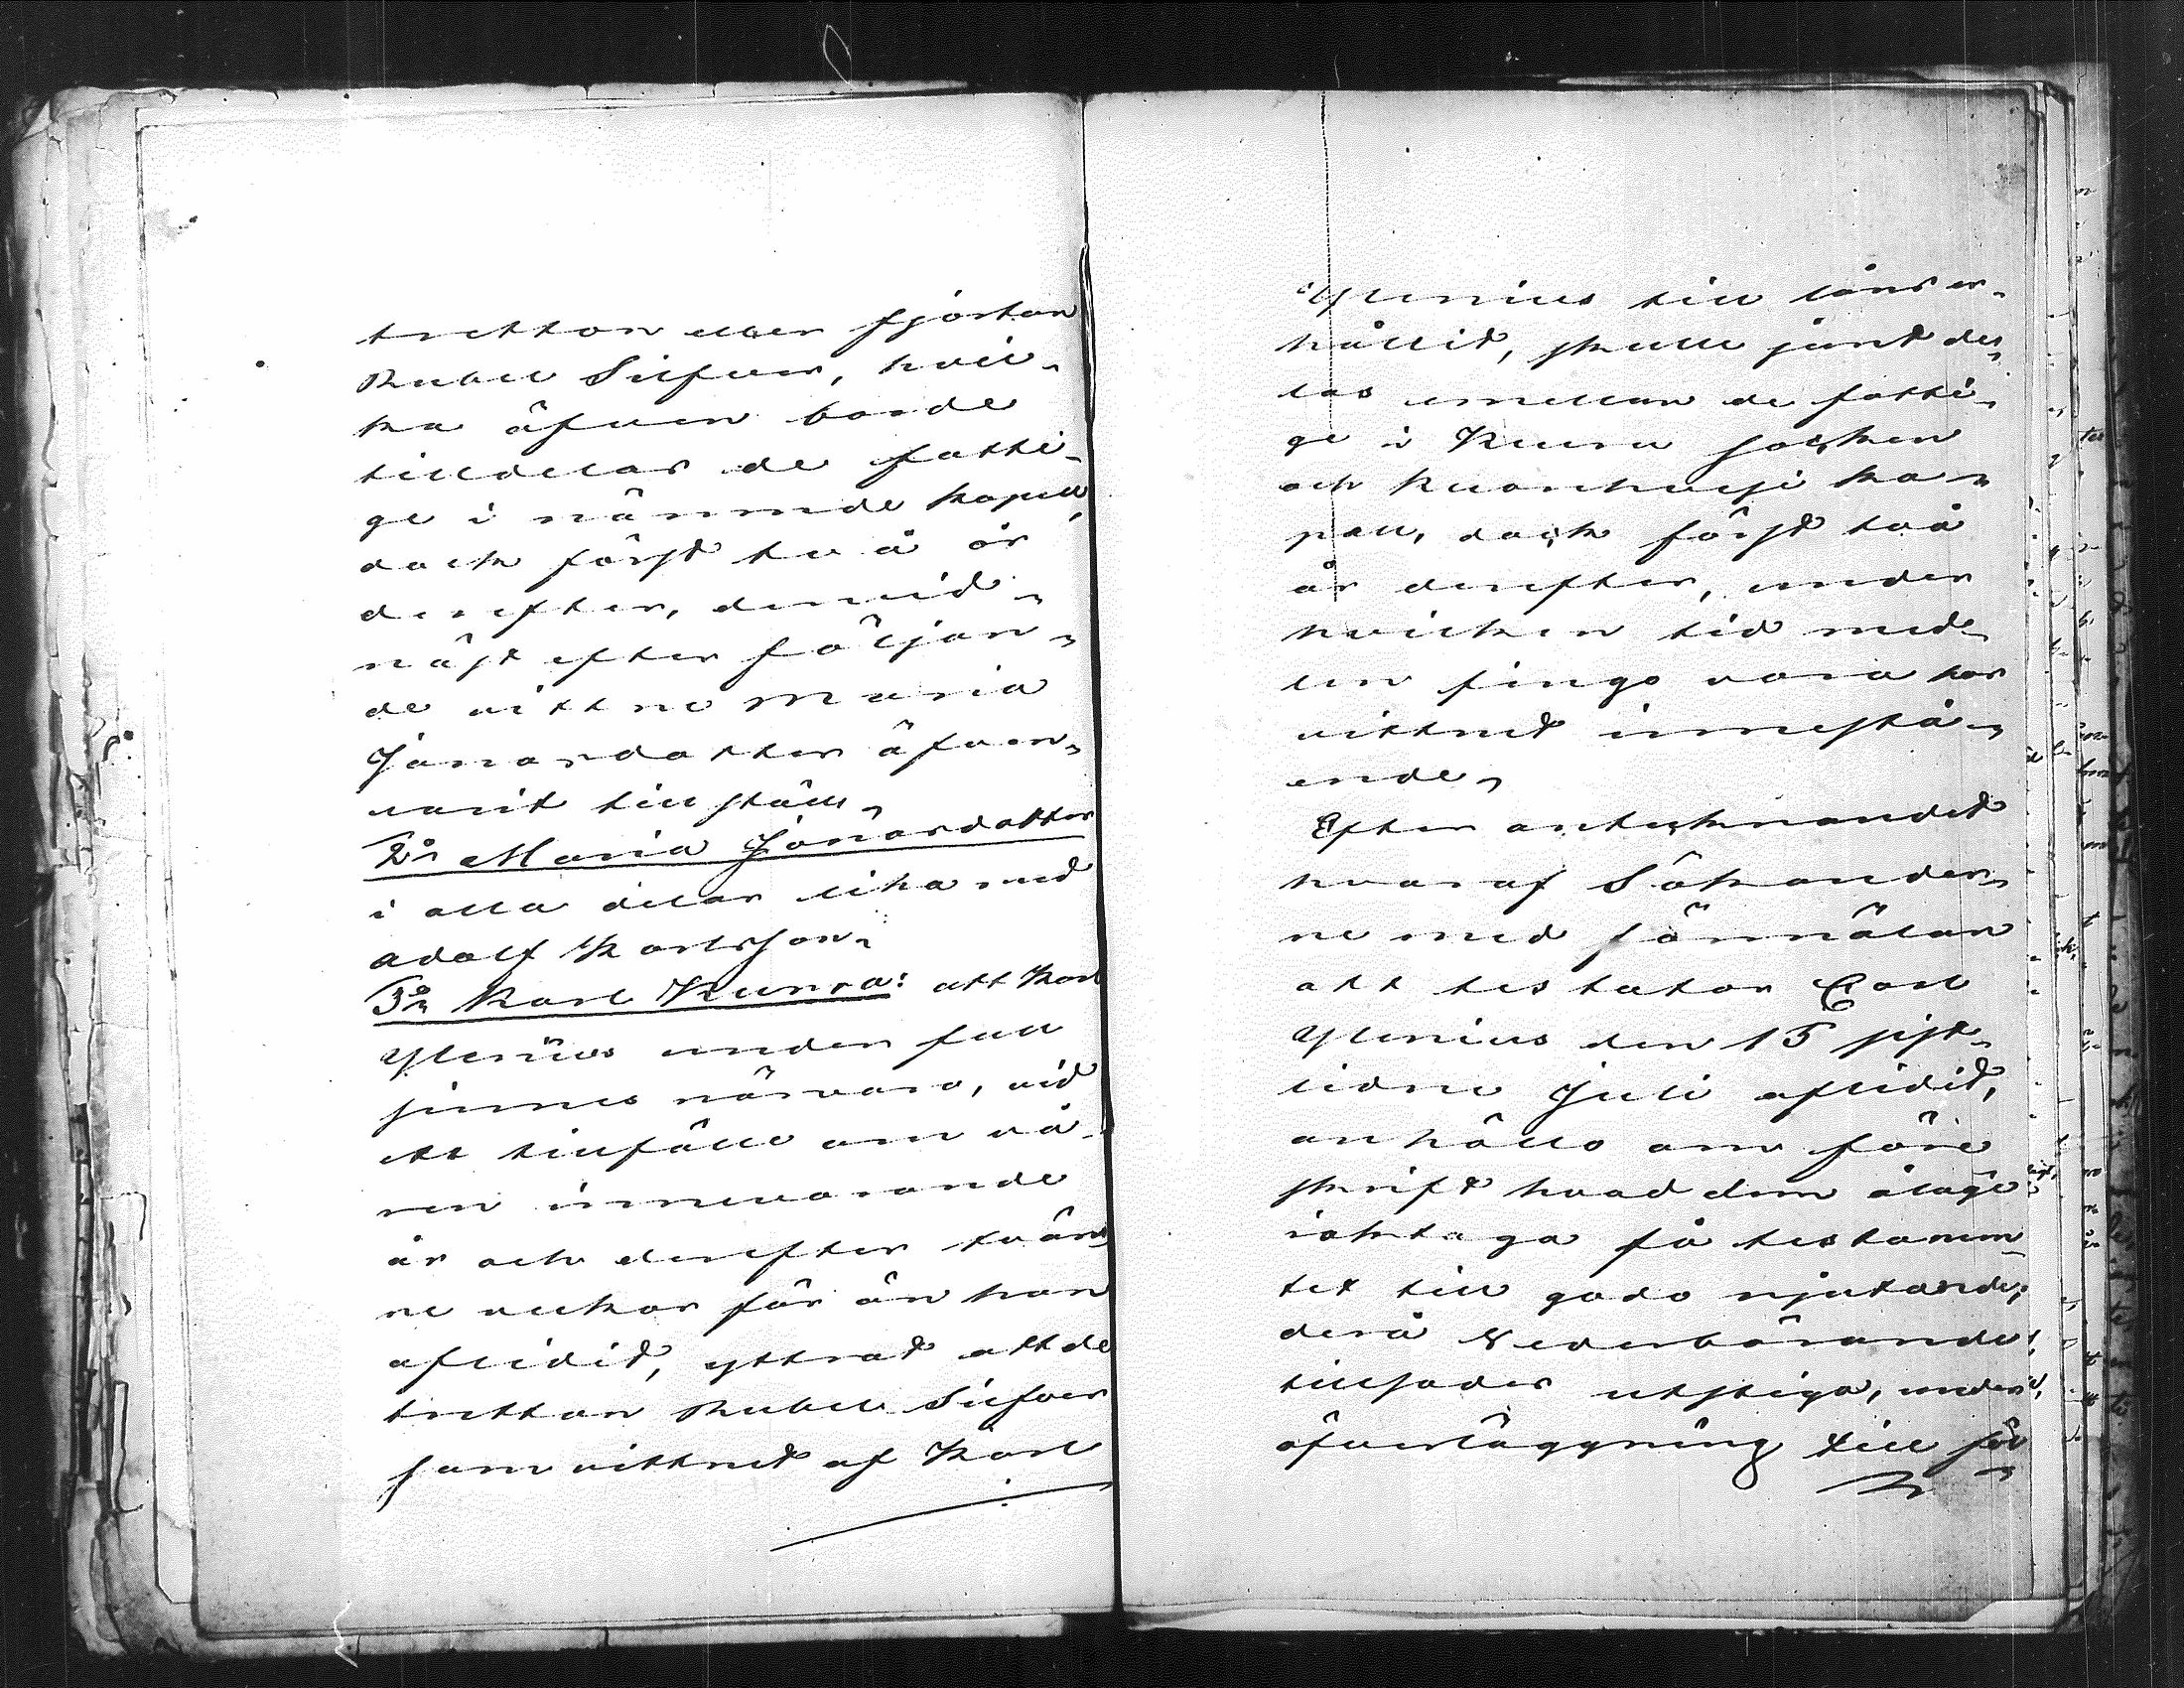 tretton eller fjorton
Rubel Silfver, hvil-
ka äfven borde
tilldelas de fatti-
ge i nämnde kapell,
dock först två år
derefter, dervid
näst efter följan-
de vittne Maria
Jonasdotter äfven-
varit tillstäds
2o Maria Jonasdotter
i alla delar lika med
Adolf Karlsson.
3o Karl Kunra: att Karl
Ylenius under full
sinnes närvaro, vid
ett tillfälle om vå-
ren innevarande
år och derefter tvän-
ne veckor för än han
aflidit, yttrat att de
tretton Rubel Silfver
som vittnet af Karl
Ylenius till låns er-
hållit, skulle jemt de-
las emellan de fatti-
ge i Kuru socken
och Kuorehvesi ka-
pell, dock först två
år derefter, under
hvilken tid med-
len fingo vara hos
vittnet innestå-
ende,
Efter antecknandet
hvaraf Sökander-
ne med förmälan
att testator Carl
Ylenius den 15 sist-
lidne Juli aflidit,
anhållo om före
skrift hvad dem ålåge
iakttaga få testamen-
tet till godo njutande;
derå Vederbörande
tillsades utstiga, under
öfverläggning till för